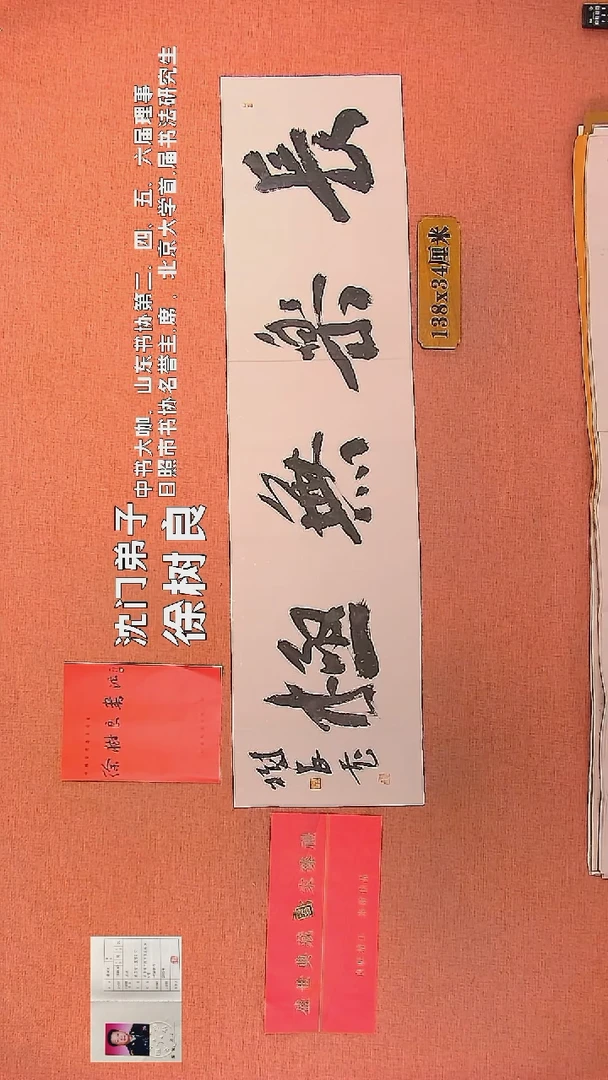 沈门弟子
徐树良
中书大咖、山东书协第二、四、五、六届理事
日照市书协名誉主席、北京大学首届书法研究生
長樂無極
樹良书
138x34厘米
盛世典藏